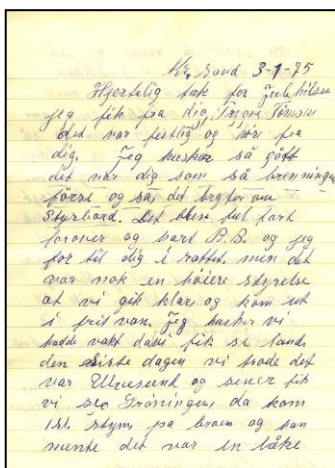 Kr. Sand 3-1-75
Hjertelig tak for Julehilsen
jeg fik fra dig, Trygve
det var festlig og høre fra
dig. Jeg husker så gått
det var dig som så brenningen
først og sa, det bryter om
Styrbord. Det blev full fart
forover og hart B.B. og jeg
for til dig i rattet. men det
var nok en høiere styrelse
at vi gik klar og kom ut
i frit van. Jeg husker vi
hadde vakt da vi fik se land.
den siste dagen vi trode det
var Ulvesund og sener fik
vi se Grøningen, da kom
1st. Styrm på broen og han
mente det var en båke